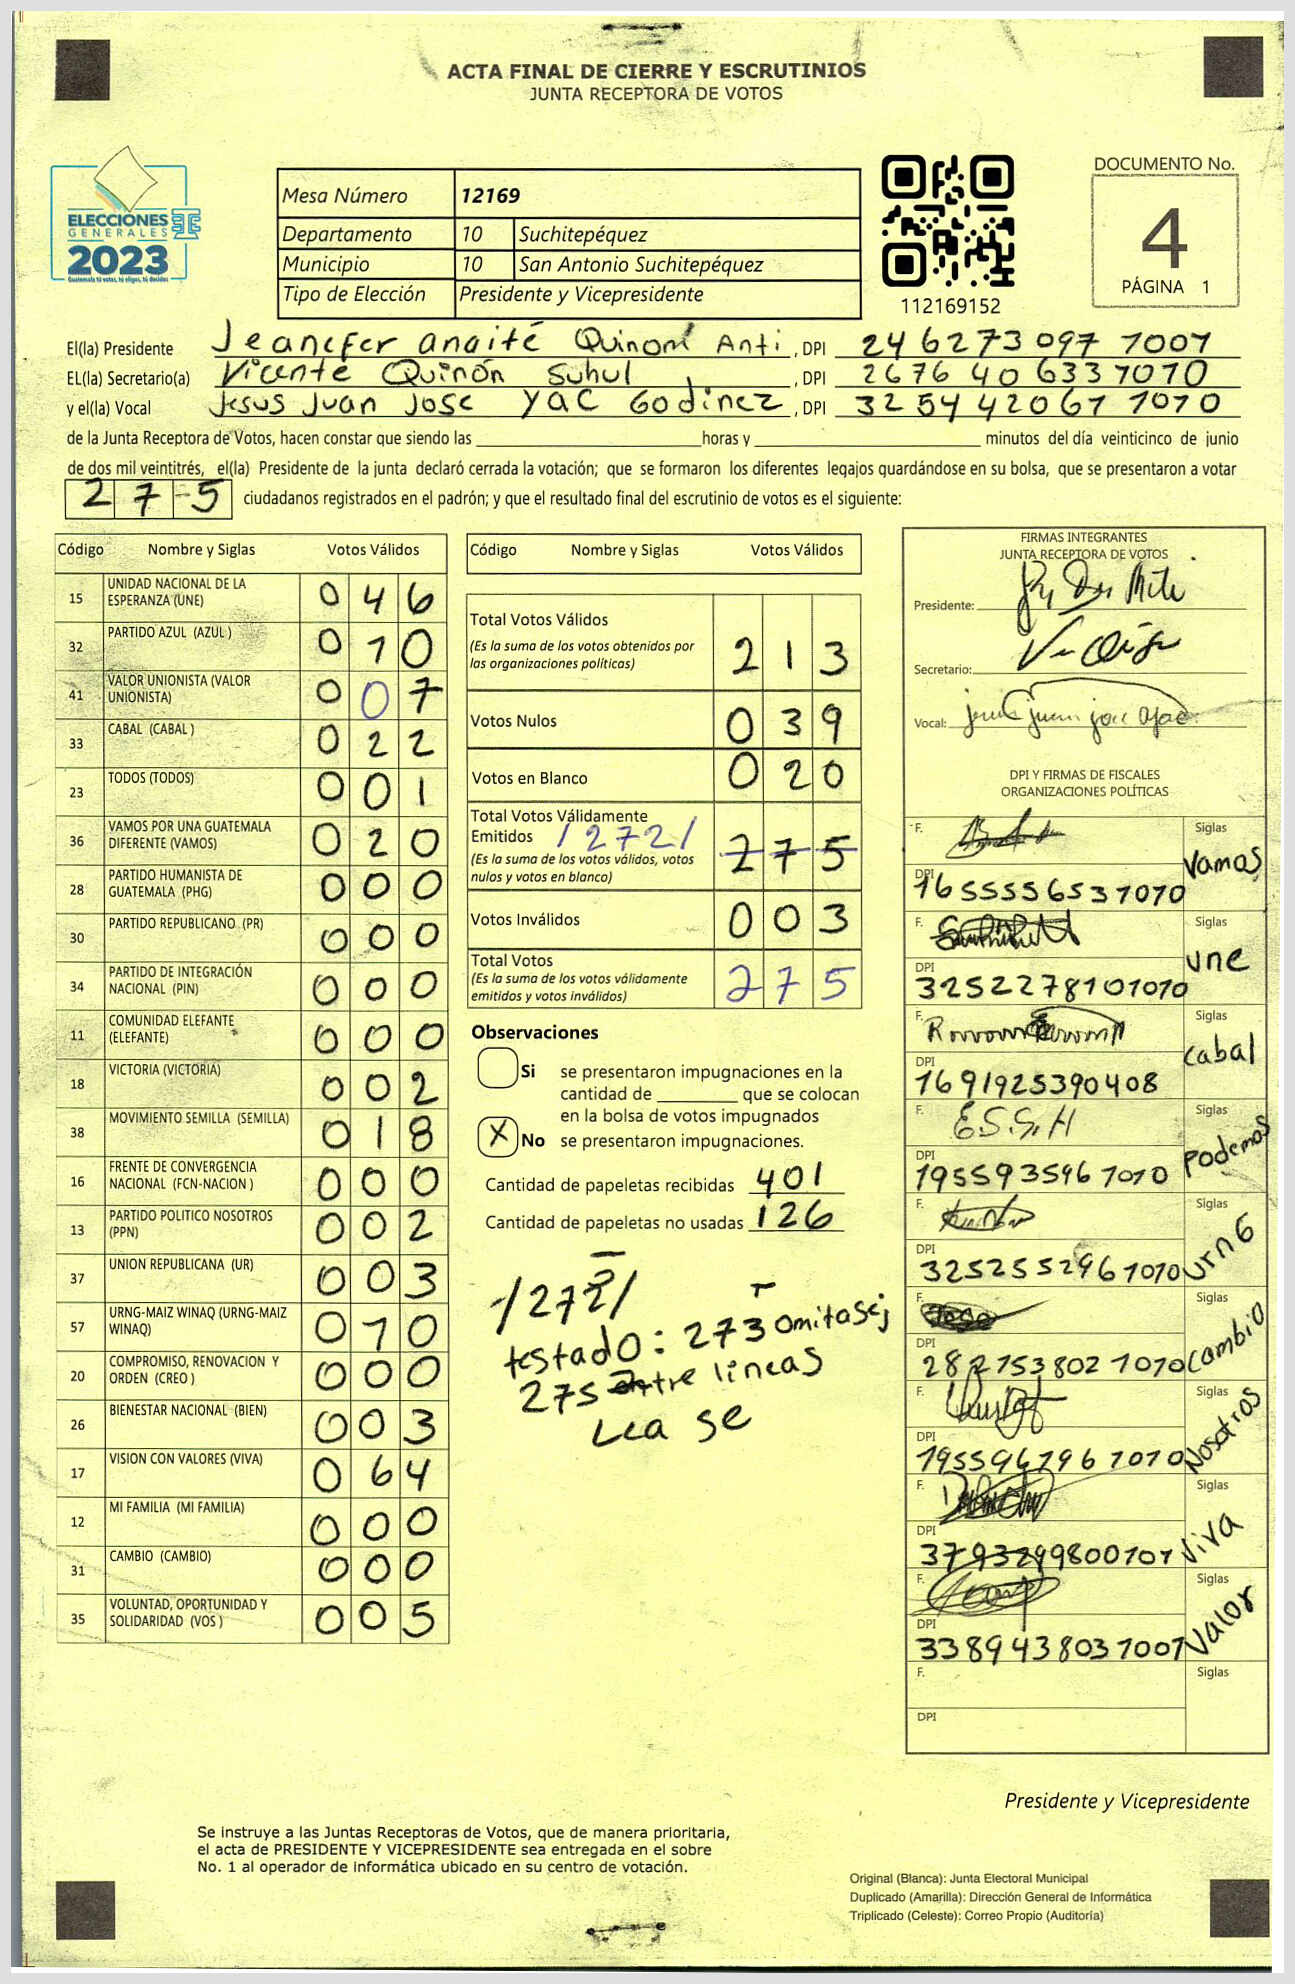 ACTA FINAL DE CIERRE Y ESCRUTINIOS
JUNTA RECEPTORA DE VOTOS
ELECCIONES
GENERALES
2023
Guatemala tú votas, tú eliges, tú decides
Mesa Número 12169
Departamento 10 Suchitepéquez
Municipio 10 San Antonio Suchitepéquez
Tipo de Elección Presidente y Vicepresidente
112169152
DOCUMENTO No.
4
PÁGINA 1
El(la) Presidente Jeanefer anaité Quinoni Anti, DPI 246273097 1001
EL(la) Secretario(a) Vicente Quinón Suhul, DPI 2676 40 633 1010
y el(la) Vocal Jesus Juan Jose Yac Godinez, DPI 3254 42061 1010
de la Junta Receptora de Votos, hacen constar que siendo las horas y minutos del día veinticinco de junio
de dos mil veintitrés, el(la) Presidente de la junta declaró cerrada la votación; que se formaron los diferentes legajos guardándose en su bolsa, que se presentaron a votar
275 ciudadanos registrados en el padrón; y que el resultado final del escrutinio de votos es el siguiente:
Código Nombre y Siglas Votos Válidos
15 UNIDAD NACIONAL DE LA ESPERANZA (UNE) 046
32 PARTIDO AZUL (AZUL ) 010
41 VALOR UNIONISTA (VALOR UNIONISTA) 007
33 CABAL (CABAL ) 022
23 TODOS (TODOS) 001
36 VAMOS POR UNA GUATEMALA DIFERENTE (VAMOS) 020
28 PARTIDO HUMANISTA DE GUATEMALA (PHG) 000
30 PARTIDO REPUBLICANO (PR) 000
34 PARTIDO DE INTEGRACIÓN NACIONAL (PIN) 000
11 COMUNIDAD ELEFANTE (ELEFANTE) 000
18 VICTORIA (VICTORIA) 002
38 MOVIMIENTO SEMILLA (SEMILLA) 018
16 FRENTE DE CONVERGENCIA NACIONAL (FCN-NACION ) 000
13 PARTIDO POLITICO NOSOTROS (PPN) 002
37 UNION REPUBLICANA (UR) 003
57 URNG-MAIZ WINAQ (URNG-MAIZ WINAQ) 010
20 COMPROMISO, RENOVACION Y ORDEN (CREO ) 000
26 BIENESTAR NACIONAL (BIEN) 003
17 VISION CON VALORES (VIVA) 064
12 MI FAMILIA (MI FAMILIA) 000
31 CAMBIO (CAMBIO) 000
35 VOLUNTAD, OPORTUNIDAD Y SOLIDARIDAD (VOS ) 005
Código Nombre y Siglas Votos Válidos
Total Votos Válidos 213
(Es la suma de los votos obtenidos por
las organizaciones políticas)
Votos Nulos 039
Votos en Blanco 020
Total Votos Válidamente
Emitidos /272/ 275
(Es la suma de los votos válidos, votos
nulos y votos en blanco)
Votos Inválidos 003
Total Votos 275
(Es la suma de los votos válidamente
emitidos y votos inválidos)
Observaciones
Si se presentaron impugnaciones en la
cantidad de que se colocan
en la bolsa de votos impugnados
X No se presentaron impugnaciones.
Cantidad de papeletas recibidas 401
Cantidad de papeletas no usadas 126
/272/
testado: 273 omitase
275 entre lineas
Lea se
FIRMAS INTEGRANTES
JUNTA RECEPTORA DE VOTOS
Presidente:
Secretario:
Vocal:
DPI Y FIRMAS DE FISCALES
ORGANIZACIONES POLÍTICAS
F. Siglas Vamos
DPI 1655556531010
F. Siglas une
DPI 3252278101010
F. Siglas cabal
DPI 1691925390408
F. E.S.G.H Siglas Podemos
DPI 195593596 1010
F. Siglas urng
DPI 325255296 1010
F. Siglas Cambio
DPI 282153802 1010
F. Siglas Nosotros
DPI 195596796 1010
F. Siglas Viva
DPI 3793299800101
F. Siglas Valor
DPI 338943803 1001
F. Siglas
DPI
Presidente y Vicepresidente
Se instruye a las Juntas Receptoras de Votos, que de manera prioritaria,
el acta de PRESIDENTE Y VICEPRESIDENTE sea entregada en el sobre
No. 1 al operador de informática ubicado en su centro de votación.
Original (Blanca): Junta Electoral Municipal
Duplicado (Amarilla): Dirección General de Informática
Triplicado (Celeste): Correo Propio (Auditoría)